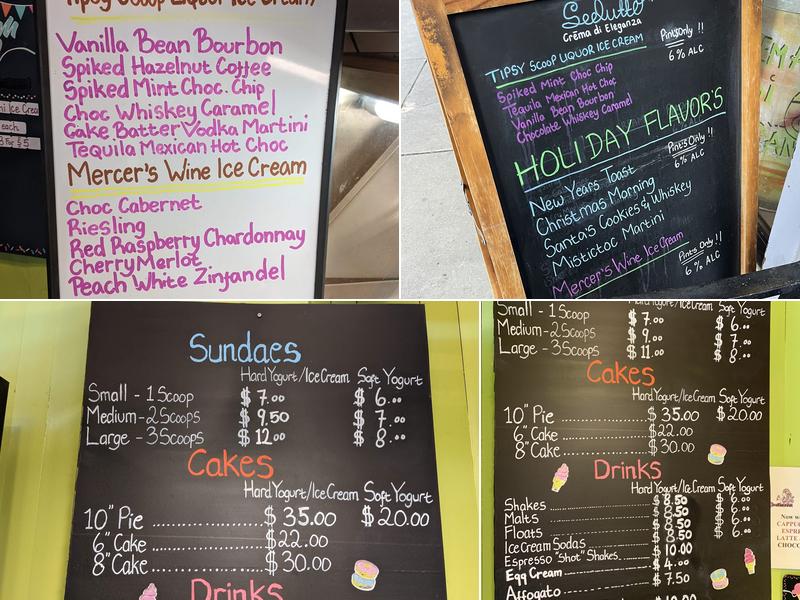 Tipsy Scoop Liquor Ice Cream
Vanilla Bean Bourbon
Spiked Hazelnut Coffee
Spiked Mint Choc. Chip
Choc Whiskey Caramel
Cake Batter Vodka Martini
Tequila Mexican Hot Choc
Mercer's Wine Ice Cream
Choc Cabernet
Riesling
Red Raspberry Chardonnay
Cherry Merlot
Peach White Zinfandel
Ice Crea
each
for $5
Sedutto
Crēma di Eleganza
TIPSY SCOOP LIQUOR ICE CREAM
Pint's Only !!
6% ALC
Spiked Mint Choc Chip
Tequila Mexican Hot Choc
Vanilla Bean Bourbon
Chocolate Whiskey Caramel
HOLIDAY FLAVOR'S
Pint's Only !!
6% ALC
New Years Toast
Christmas Morning
Santa's Cookies & Whiskey
Mistictoc Martini
Mercer's Wine Ice Cream
Pint's Only !!
6% ALC
Sundaes
Hard Yogurt/Ice Cream Soft Yogurt
Small - 1 Scoop $7.00 $6.00
Medium - 2 Scoops $9.50 $7.00
Large - 3 Scoops $12.00 $8.00
Cakes
Hard Yogurt/Ice Cream Soft Yogurt
10" Pie ................ $35.00 $20.00
6" Cake ................ $22.00
8" Cake ................ $30.00
Drinks
Hard Yogurt/Ice Cream Soft Yogurt
Small - 1 Scoop $7.00 $6.00
Medium - 2 Scoops $9.00 $7.00
Large - 3 Scoops $11.00 $8.00
Cakes
Hard Yogurt/Ice Cream Soft Yogurt
10" Pie ................ $35.00 $20.00
6" Cake ................ $22.00
8" Cake ................ $30.00
Drinks
Hard Yogurt/Ice Cream Soft Yogurt
Shakes ................ $8.50 $6.00
Malts ................ $8.50 $6.00
Floats ................ $8.50 $6.00
Ice Cream Sodas ................ $8.50 $6.00
Espresso "Shot" Shakes ................ $10.00
Egg Cream ................ $4.00
Affogato ................ $7.50
Now
CAPPU
ESPRE
LATTE
CHOC